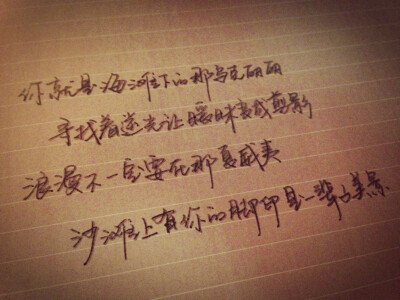 你就是海滩下的那乌克丽丽
寻找着逆光让暧昧变成剪影
浪漫不一定要在那夏威夷
沙滩上有你的脚印是一辈的美景